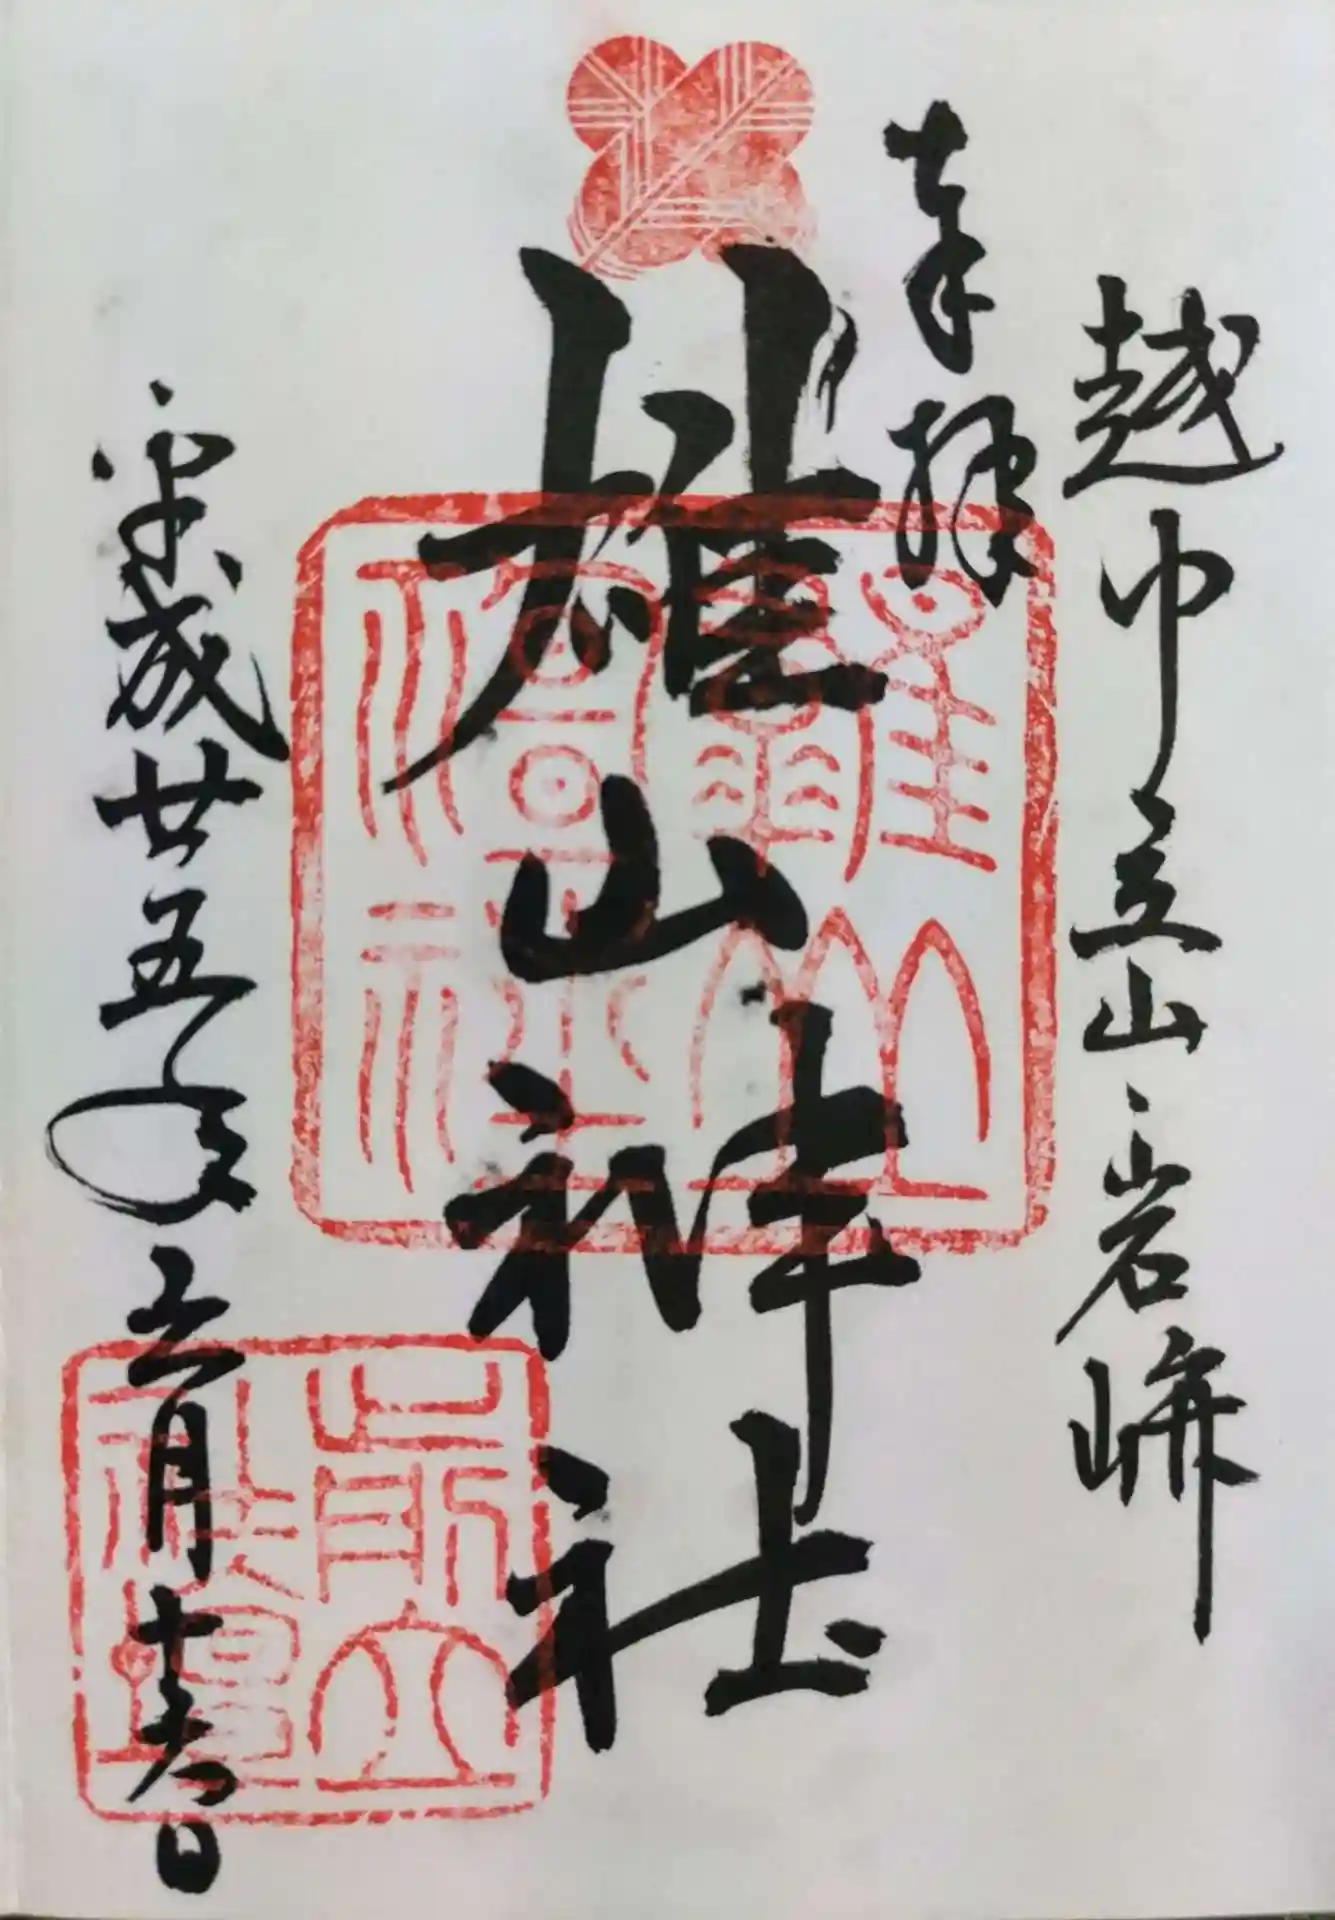 越中立山岩峅
奉拝
雄山神社
平成廿五年 月十 日
雄山
神社
前立
社壇